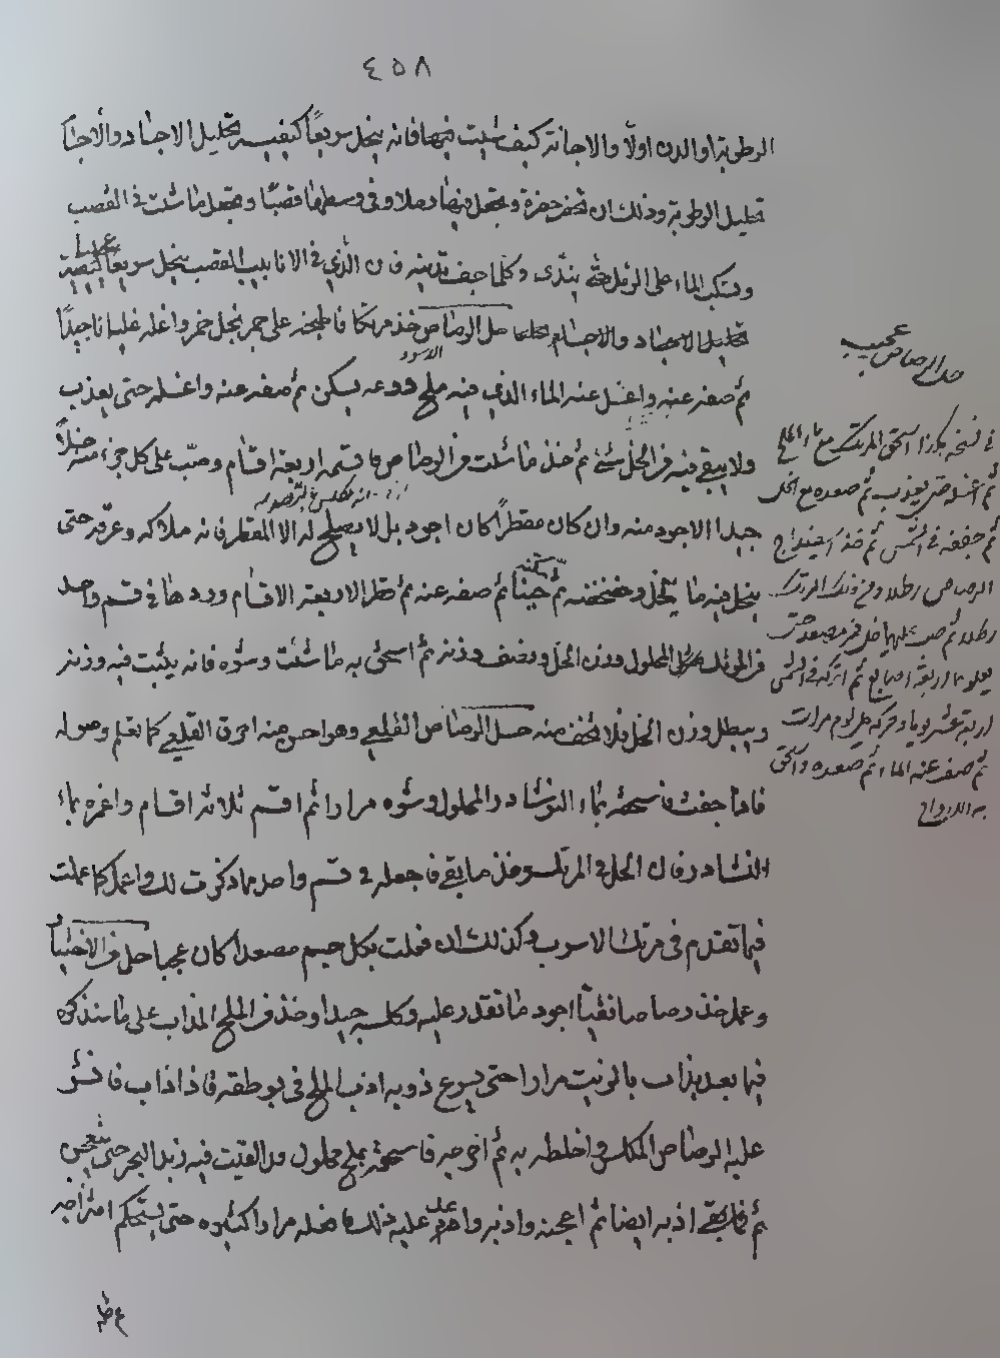 ٤٥٨
الرطوبة او الدن اولا والاجانة كيف شئت فيها فانه ينحل سريعا كيفية تحليل الاجساد والاجسا
تحليل الرطوبة وذلك ان تحفر حفرة وتجعل فيها رملا وفي وسطها قصبا وتجعل ما شئت في القصب
وتسكب الماء على الرمل حتى يندى وكلما جف تديته فان الذي في الانابيب القصب ينحل سريعا كيفية
عمل
تحليل الاجساد والاجسام حل الرصاص خذ مرتكا فاطبخه على جمر بخل خمر واغله غليانا جيدا
ثم صفه عنه واغسل عنه الماء الذي فيه ملح ودعه يسكن ثم صفه عنه واغسله حتى يعذب
ولا يبقى فيه من الخل شئ ثم خذ ما شئت من الرصاص فاقسمه اربعة اقسام وصب على كل جزء منه خلا
جيدا الاجود منه وان كان مقطرا كان اجود بل لا يصلح له الا المقطر فانه ملاكه وعرقه حتى
ينحل فيه ما ينحل وخضخضه ثم صفه عنه ثم قطر الاربعة الاقسام وردها في قسم واحد
من المرتك المحلول وزن الخل ونصف وزنه ثم اسحق به ما شئت وسوه فانه يثبت فيه وزنه
ويبطل وزن الخل فلا تخف منه حل الرصاص القلعي وهو احسن منه احرق القلعي كما تعلم وصوله
فاذا جفت فاسحقه بماء النوشادر المحلول وسوه مرارا ثم اقسم ثلاثة اقسام واغمره بماء
النشادر فان الحل في المرتك وخذ ما بقي فاجعله في قسم واحد مما ذكرت لك واعمل كما عملت
فيما تقدم في مرتك الاسرب وكذلك ان فعلت بكل جسم مصعدا كان عجبا حل من الاختيار
وعمل خذ رصاصا نقيا اجود ما تقدر عليه وكلسه جيدا وخذ من الملح المذاب على ما سنذكره
فيما بعد يذاب بالزيت مرارا حتى يسرع ذوبه اذب الملح في بوطقة فاذا ذاب فانثر
عليه الرصاص المكلس واخلطه به ثم اخرجه فاسحقه بملح محلول قد القيت فيه زبد البحر حتى
ثم ما بقي اذبه ايضا ثم اعجنه واذبه عليه ذلك فافعله مرارا كثيره حتى يستحكم امتزاجه
حل الرصاص عجيب
في نسخة هكذا اسحق المرتك مع ماء الملح
ثم اغسله حتى يعذب ثم صعده مع الخل
ثم جففه في الشمس ثم خذ اسفيداج
الرصاص رطلا ومن ذلك المرتك
رطلا ثم صب عليهما خل خمر مصعد حتى
يعلوهما اربعة اصابع ثم اتركه في الشمس
اربعة عشر يوما وحركه كل يوم مرات
ثم صف عنه الماء ثم صعده واسحق
به الارواح